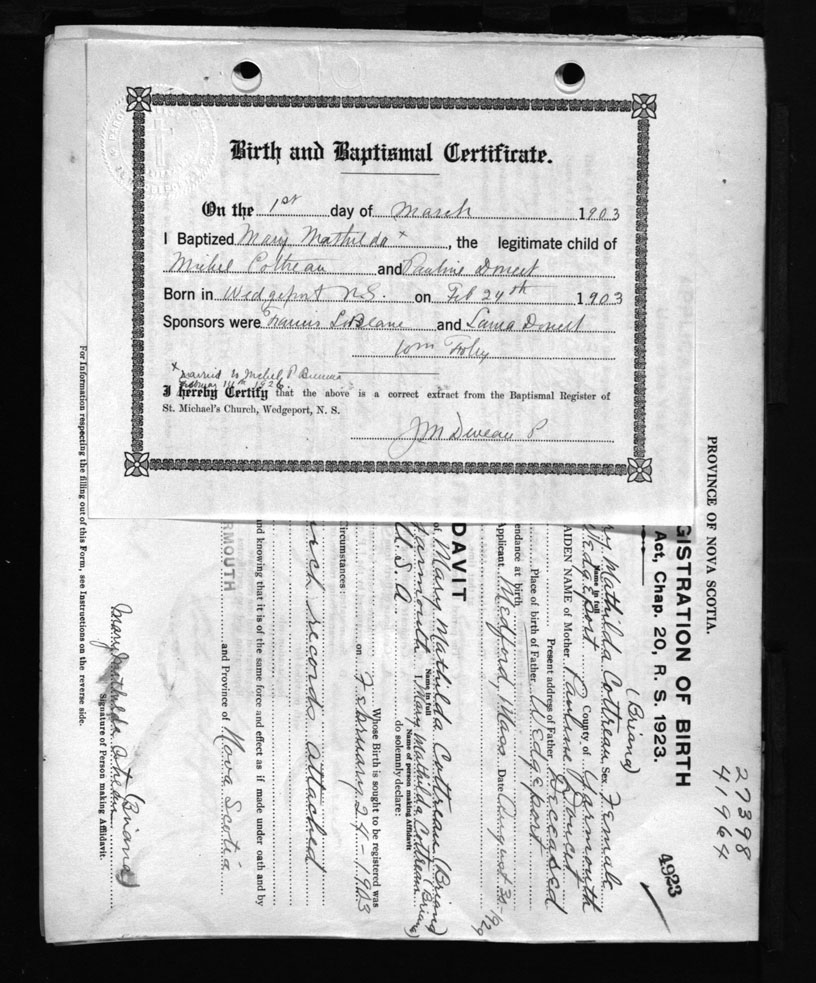 Birth and Baptismal Certificate.
On the 1st day of March 1903
I Baptized Mary Mathilda x, the legitimate child of
Michel Cottreau and Pauline Doucet
Born in Wedgeport N.S. on Feb 24th 1903
Sponsors were Francis LeBlanc and Laura Doucet
Wm Foley
x married to Michel P
February 11th 1926
I hereby Certify that the above is a correct extract from the Baptismal Register of
St. Michael's Church, Wedgeport, N. S.
PROVINCE OF NOVA SCOTIA.
GISTRATION OF BIRTH
Act, Chap. 20, R. S. 1923.
27398
41964
4923
(Briand)
Mathilda Cottreau Sex Female
Name in full
Wedgeport County of Yarmouth
AIDEN NAME of Mother Pauline Doucet
Present address of Father Deceased
Place of birth of Father Wedgeport
endance at birth
Applicant Medford, Mass Date August 30-1929
DAVIT
of Mary Mathilda Cottreau (Briand)
Name in full
Yarmouth I, Mary Mathilda Cottreau (Briand)
Name of person making Affidavit
U.S.A. do solemnly declare:
Whose Birth is sought to be registered was
on February 24-1903
ircumstances:
rch records attached
nd knowing that it is of the same force and effect as if made under oath and by
RMOUTH and Province of Nova Scotia
Mary Mathilda Cottreau (Briand)
Signature of Person making Affidavit.
For Information respecting the filling out of this Form, see Instructions on the reverse side.